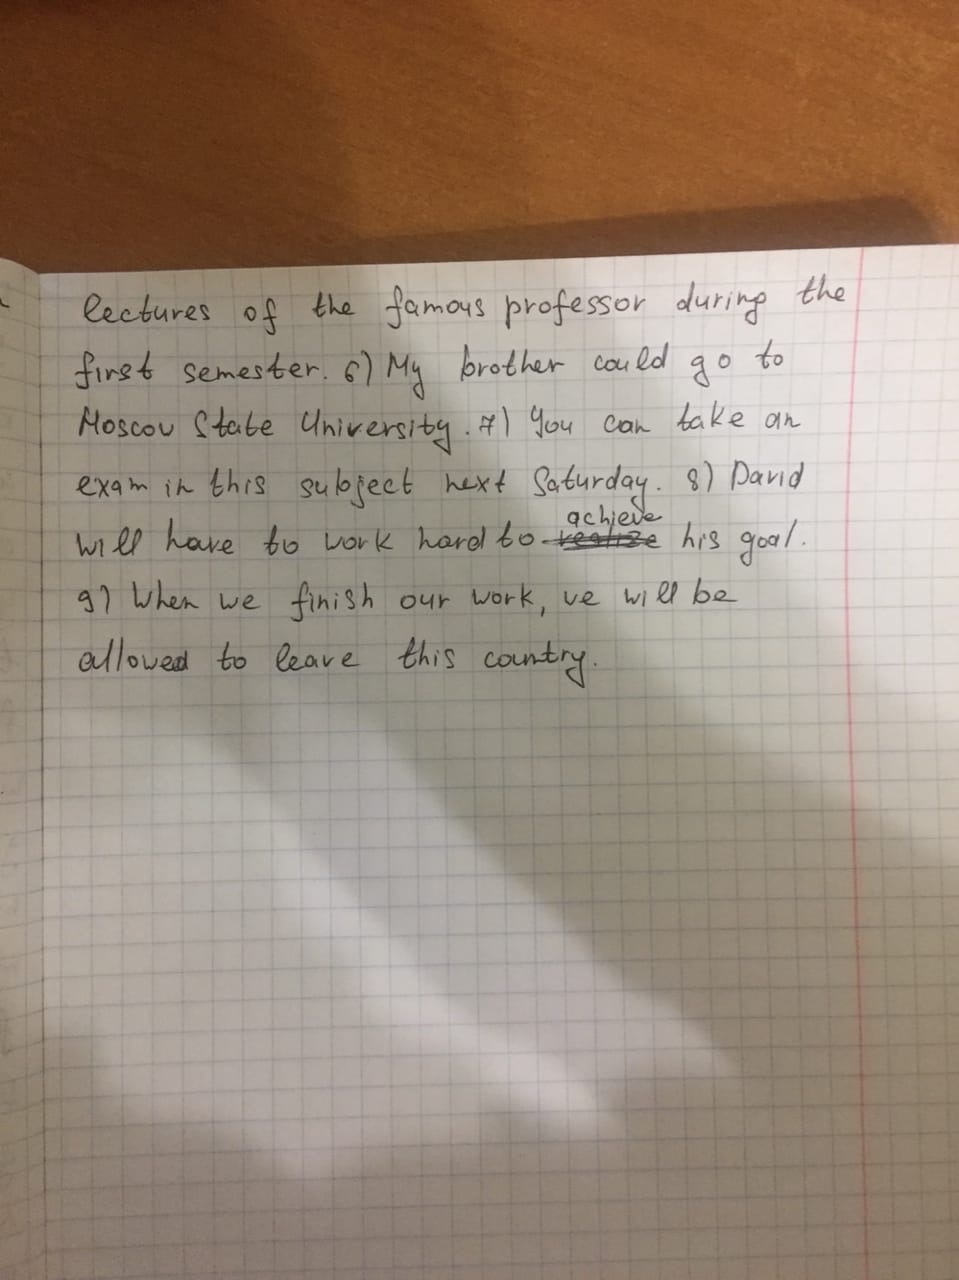 lectures of the famous professor during the
first semester. 6) My brother could go to
Moscow State University. 7) You can take an
exam in this subject next Saturday. 8) David
will have to work hard to achieve realize his goal.
9) When we finish our work, we will be
allowed to leave this country.